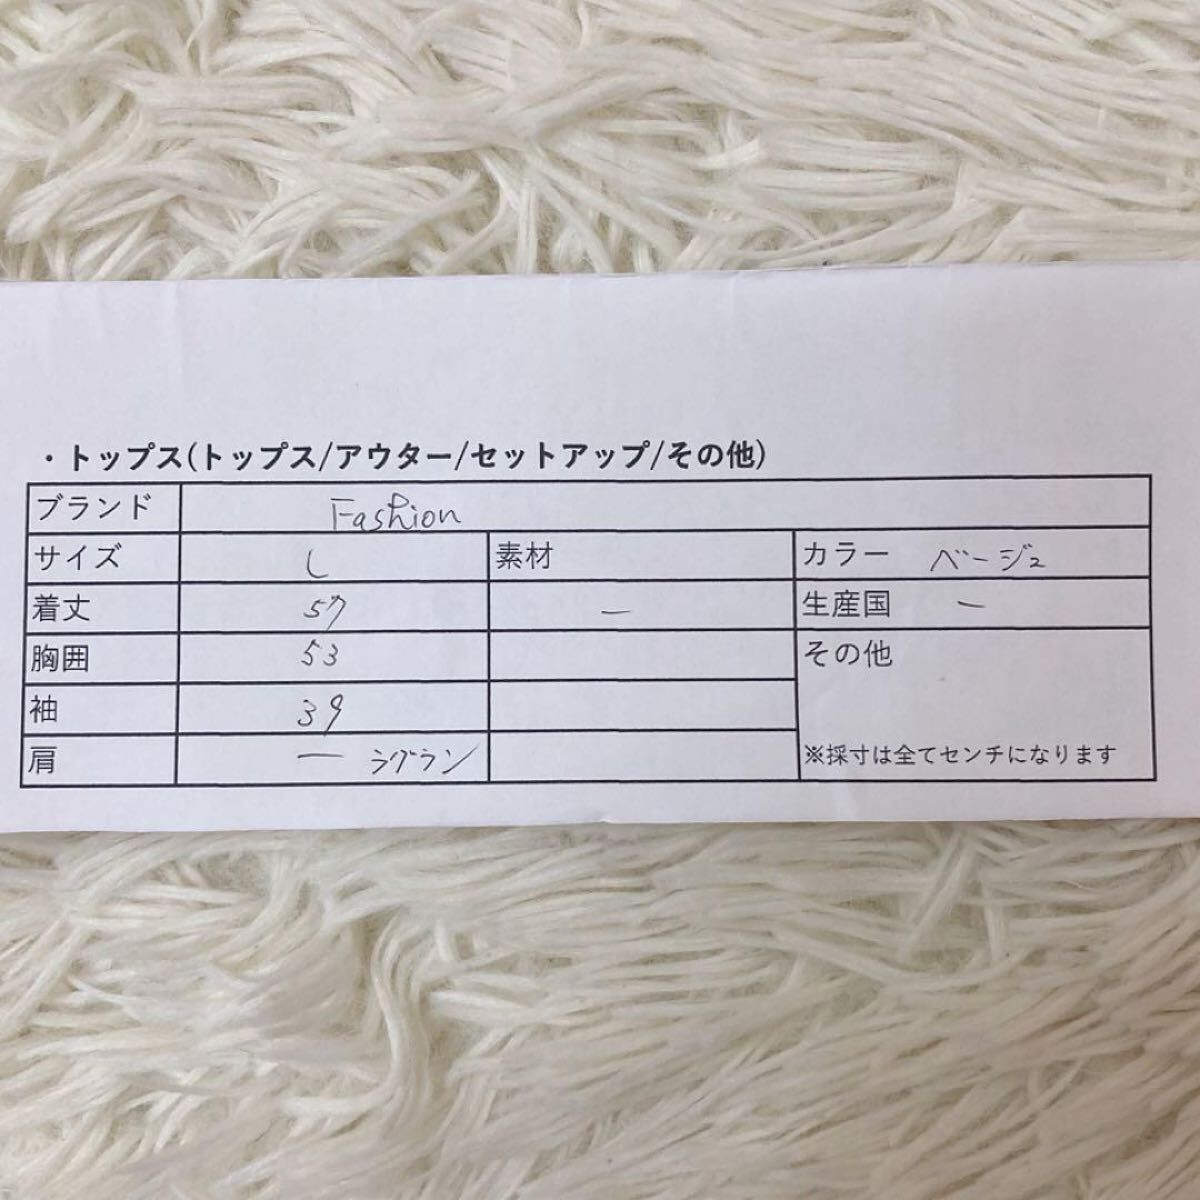 ・トップス(トップス/アウター/セットアップ/その他)
ブランド Fashion
サイズ L 素材 カラー ベージュ
着丈 57 ー 生産国 ー
胸囲 53 その他
袖 39
肩 ー ラグラン ※採寸は全てセンチになります